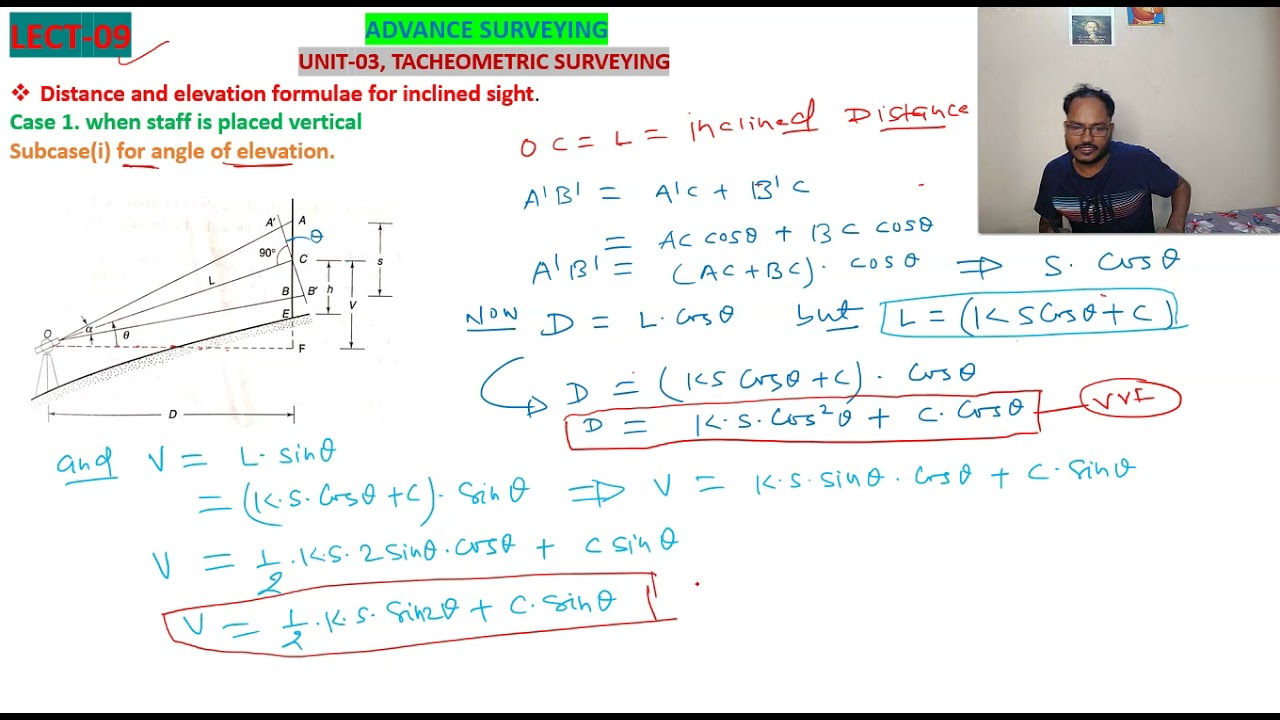 LECT-09
ADVANCE SURVEYING
UNIT-03, TACHEOMETRIC SURVEYING
❖ Distance and elevation formulae for inclined sight.
Case 1. when staff is placed vertical
Subcase(i) for angle of elevation.
OC = L = inclined Distance
A'B' = A'C + B'C
= AC cosθ + BC cosθ
A'B' = (AC + BC). cosθ ⇒ S. Cosθ
Now D = L. Cosθ but L = (KS Cosθ + C)
D = (KS Cosθ + C). Cosθ
D = K.S. Cos²θ + C. Cosθ VVI
A' A
θ
90° C
S
L
B B' h V
E
O α θ
F
D
and V = L. sinθ
= (K.S. Cosθ + C). Sinθ ⇒ V = K.S. sinθ. cosθ + C. Sinθ
V = 1/2 . K.S. 2 sinθ. cosθ + C sinθ
V = 1/2 . K.S. Sin2θ + C. Sinθ